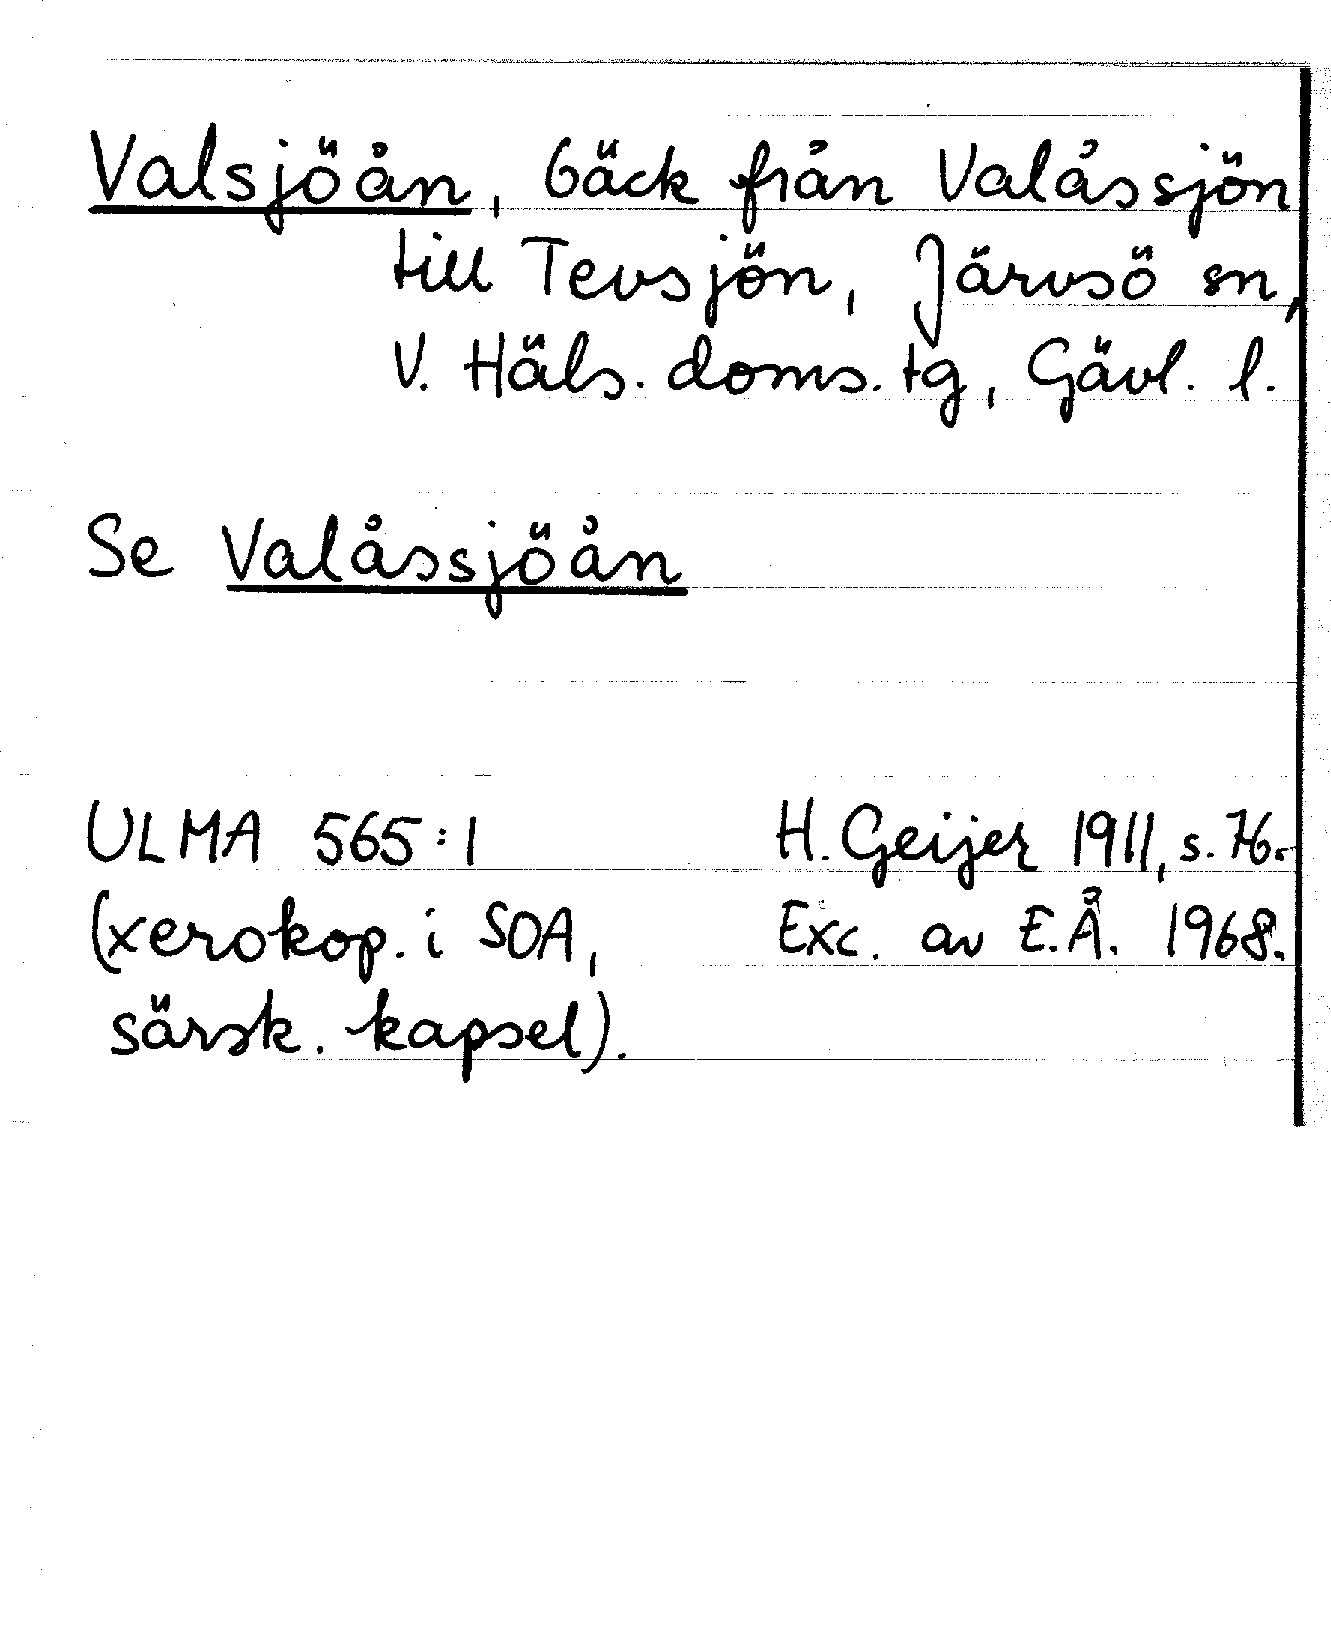 Valsjöån, bäck från Valåssjön
till Tevsjön, Järvsö sn,
V. Häls. doms. tg, Gävl. l.
Se Valåssjöån
ULMA 565:1 H. Geijer 1911, s. 76.
(xerokop. i SOA, Exc. av E.Å. 1968.
särsk. kapsel).